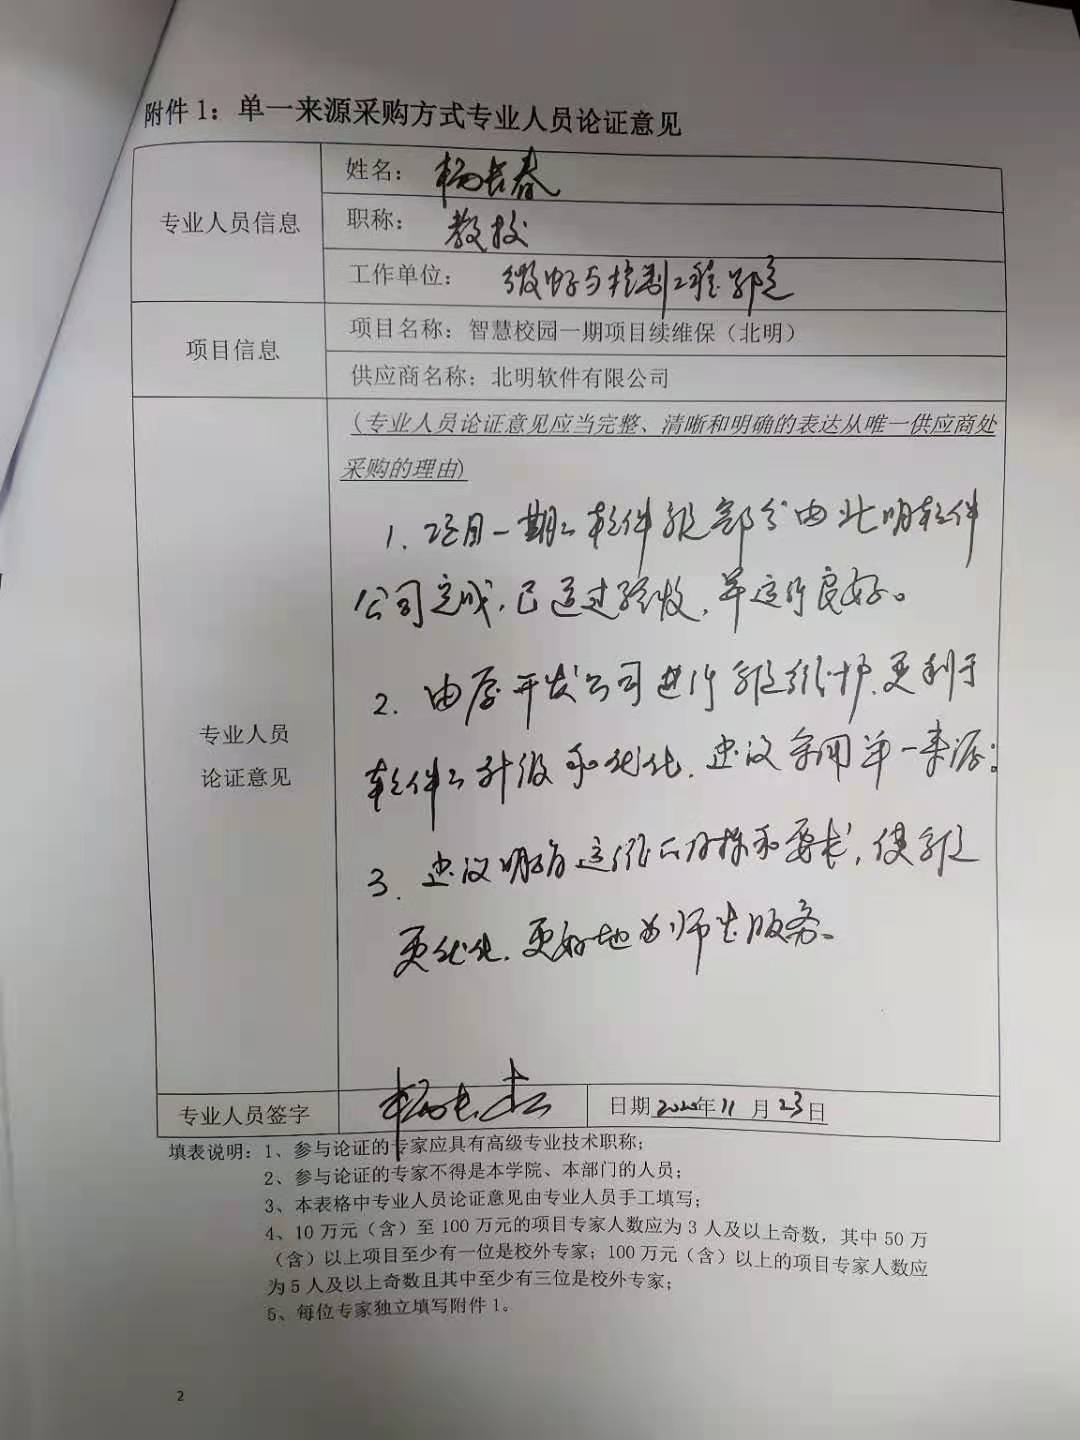 附件1：单一来源采购方式专业人员论证意见
专业人员信息
姓名：杨长春
职称：教授
工作单位：微电子与控制工程学院
项目信息
项目名称：智慧校园一期项目续维保（北明）
供应商名称：北明软件有限公司
专业人员
论证意见
（专业人员论证意见应当完整、清晰和明确的表达从唯一供应商处
采购的理由）
1. 项目一期之软件系统部分由北明软件
公司完成，已通过验收，并运行良好。
2. 由原开发公司进行系统维护，更利于
软件之升级和优化，建议采用单一来源。
3. 建议明确运维之目标和要求，使系统
更优化，更好地为师生服务。
专业人员签字
杨长春
日期2020年11月23日
填表说明：1、参与论证的专家应具有高级专业技术职称；
2、参与论证的专家不得是本学院、本部门的人员；
3、本表格中专业人员论证意见由专业人员手工填写；
4、10万元（含）至100万元的项目专家人数应为3人及以上奇数，其中50万
（含）以上项目至少有一位是校外专家；100万元（含）以上的项目专家人数应
为5人及以上奇数且其中至少有三位是校外专家；
5、每位专家独立填写附件1。
2